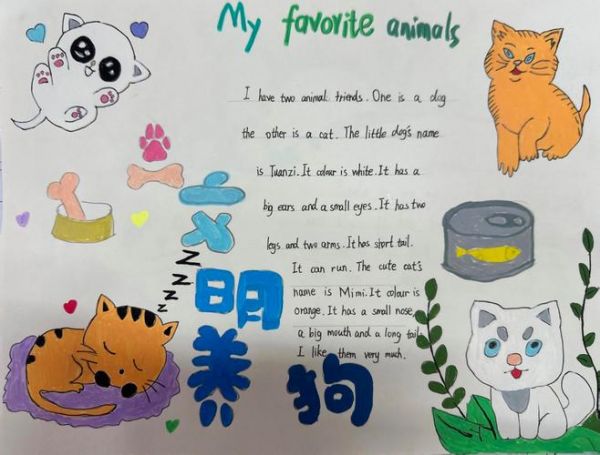 My favorite animals
I have two animal friends. One is a dog
the other is a cat. The little dog's name
is Tuanzi. It colour is white. It has a
big ears and a small eyes. It has two
legs and two arms. It has short tail.
It can run. The cute cat's
name is Mimi. It colour is
orange. It has a small nose
a big mouth and a long tail.
I like them very much.
文
明
养
狗